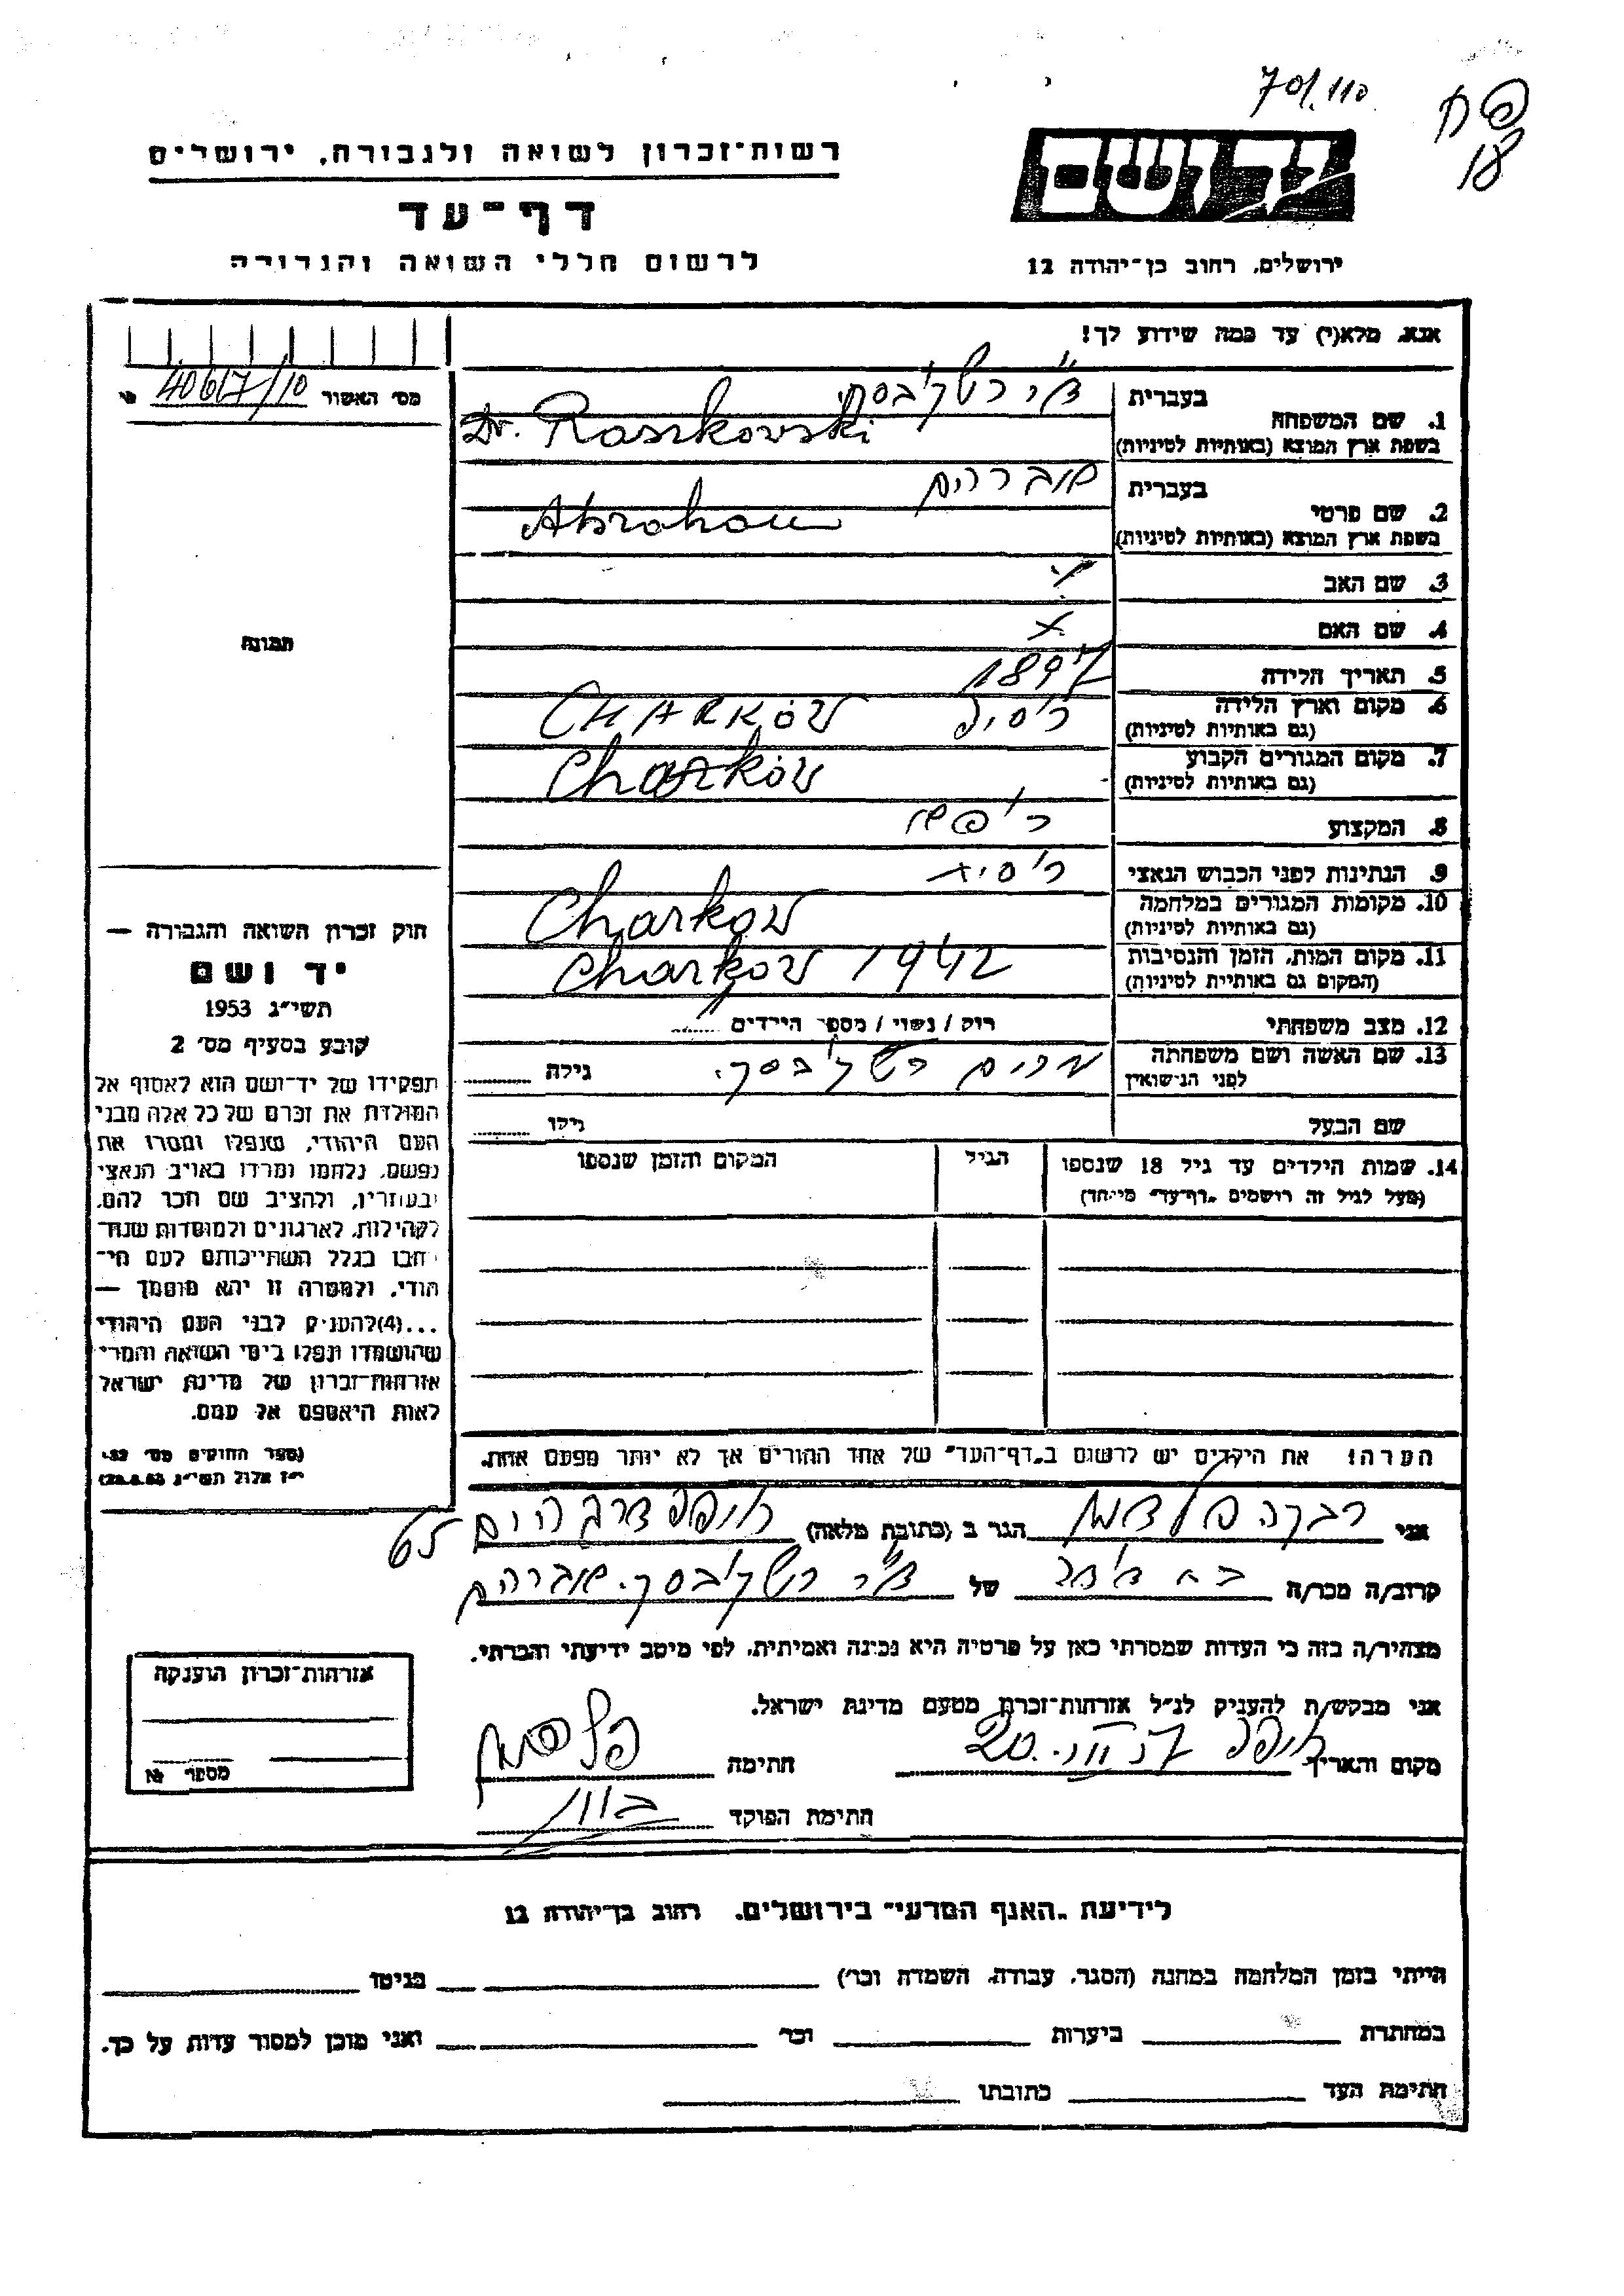 701.110
רשות־זכרון לשואה ולגבורה, ירושלים
דף־עד
לרשום חללי השואה והגבורה
ירושלים, רחוב בן־יהודה 12
אנא, מלא(י) עד כמה שידוע לך!
מס׳ האשור 40617/10
בעברית ד״ר רשקובסקי
1. שם המשפחה
בשפת ארץ המוצא (באותיות לטיניות) Dr. Raszkovski
בעברית אברהם
2. שם פרטי
בשפת ארץ המוצא (באותיות לטיניות) Abraham
3. שם האב
4. שם האם
5. תאריך הלידה 1897
6. מקום וארץ הלידה CHARKÓV רוסיה
(גם באותיות לטיניות)
7. מקום המגורים הקבוע Charkóv
(גם באותיות לטיניות)
8. המקצוע רופא
9. הנתינות לפני הכבוש הנאצי רוסית
10. מקומות המגורים במלחמה Charkov
(גם באותיות לטיניות)
11. מקום המות, הזמן והנסיבות Charkov 1942
(המקום גם באותיית לטיניות)
12. מצב משפחתי רווק / נשוי / מספר הילדים
13. שם האשה ושם משפחתה מרים רשקובסקי גילה
לפני הנישואין
שם הבעל גילו
14. שמות הילדים עד גיל 18 שנספו הגיל המקום והזמן שנספו
(מעל לגיל זה רושמים „דף־עד״ מייחד)
תמונה
חוק זכרון השואה והגבורה —
יד ושם
תשי״ג 1953
קובע בסעיף מס׳ 2
תפקידו של יד־ושם הוא לאסוף אל
המולדת את זכרם של כל אלה מבני
העם היהודי, שנפלו ומסרו את
נפשם, נלחמו ומרדו באויב הנאצי
ובעוזריו, ולהציב שם וזכר להם,
לקהילות, לארגונים ולמוסדות שנח־
רבו בגלל השתייכותם לעם הי־
הודי, ולמטרה זו יהא מוסמך —
...(4) להעניק לבני העם היהודי
שהושמדו ונפלו בימי השואה והמרי
אזרחות־זכרון של מדינת ישראל
לאות היאספם אל עמם.
(ספר החוקים מס׳ 132,
י״ז אלול תשי״ג 28.8.53)
הערה! את הילדים יש לרשום ב„דף־העד״ של אחד ההורים אך לא יותר מפעם אחת.
אני רבקה פלדמן הגר ב (כתובת מלאה) חיפה דרך הים 65
קרוב/ה מכר/ה של ד״ר רשקובסקי אברהם
מצהיר/ה בזה כי העדות שמסרתי כאן על פרטיה היא נכונה ואמיתית, לפי מיטב ידיעתי והכרתי.
אני מבקש/ת להעניק לנ״ל אזרחות־זכרון מטעם מדינת ישראל.
מקום והאריך חיפה חתימה
חתימת הפוקד
אזרחות־זכרון הוענקה
מספר
לידיעת „האגף המדעי״ בירושלים, רחוב בן־יהודה 12
הייתי בזמן המלחמה במחנה (הסגר, עבודה, השמדה וכר׳) בגיטו
במחתרת ביערות וכר׳ ואני מוכן למסור עדות על כך.
חתימת העד כתובתו